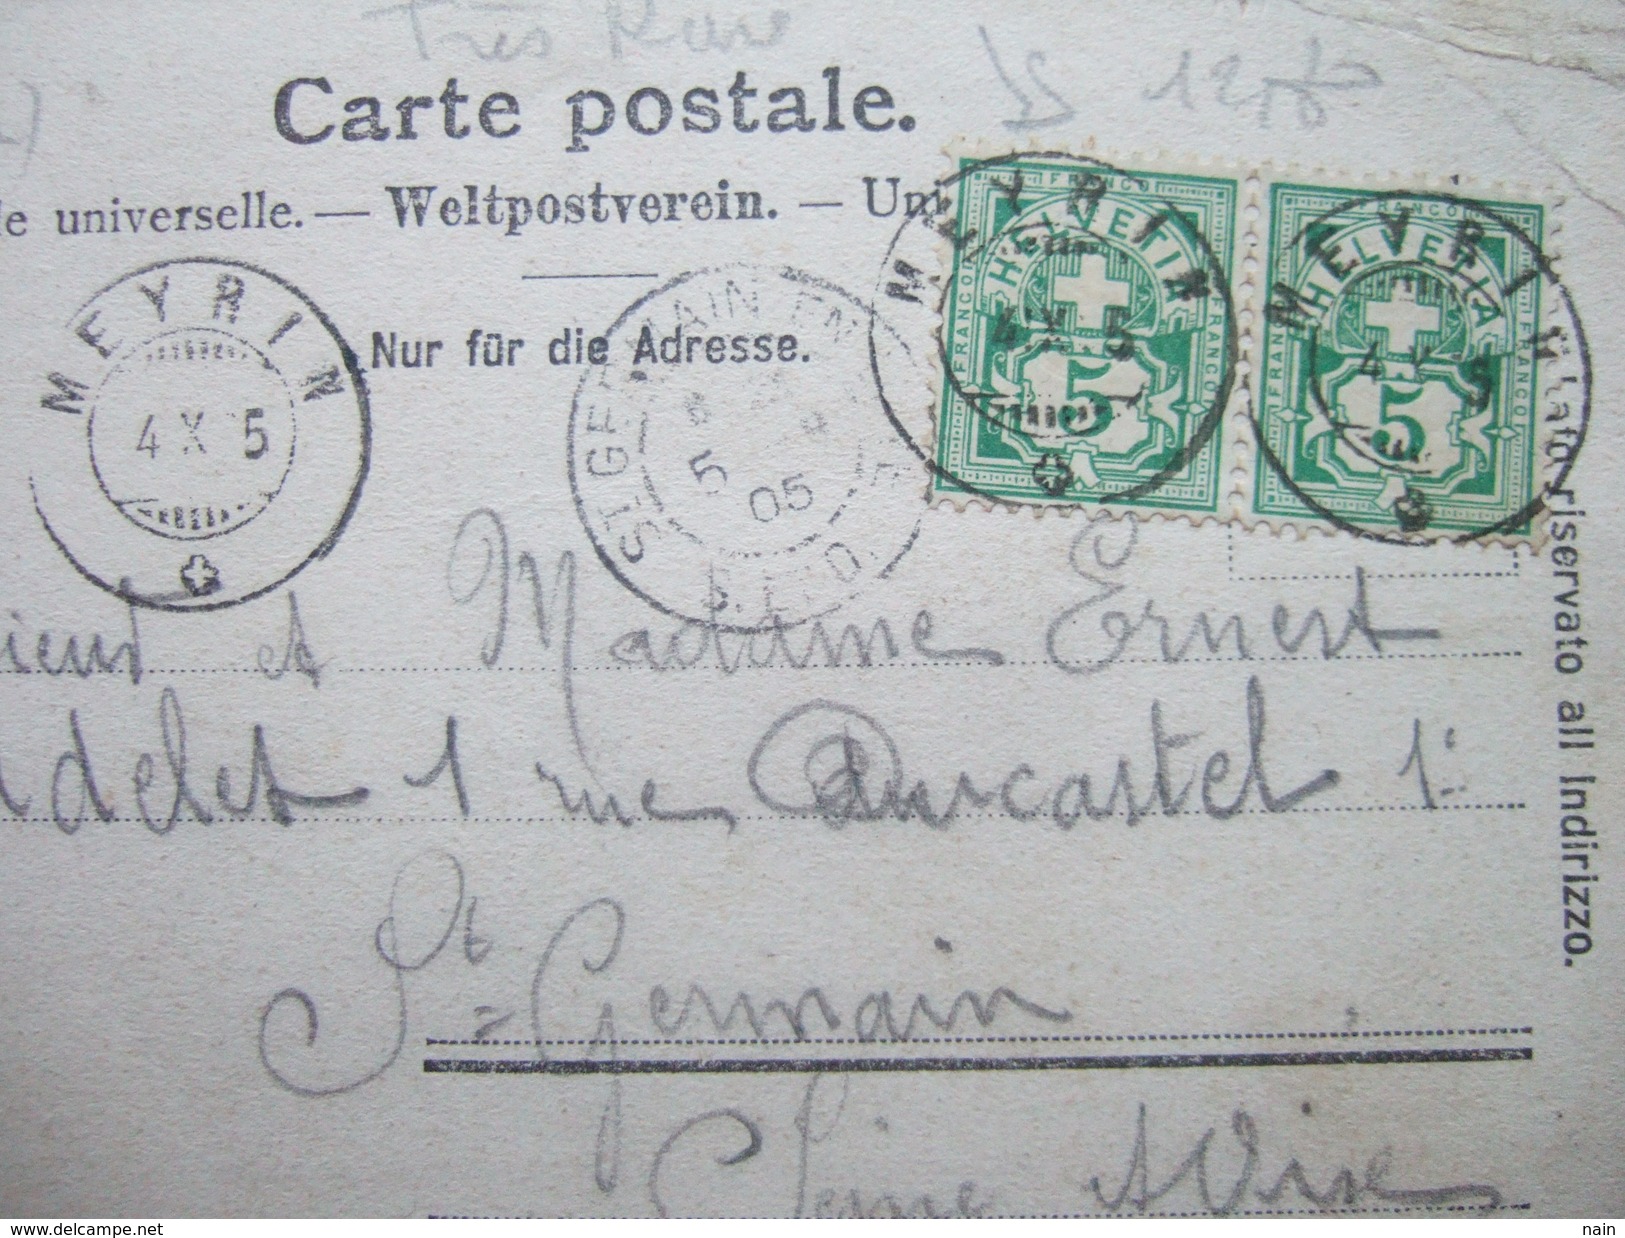 Très Rare
Carte postale.
le universelle. — Weltpostverein. — Uni
Nur für die Adresse.
MEYRIN
4 X 5
ST GERMAIN EN
5
05
MEYRIN
4 X 5
FRANCO
FRANCO
FRANCO
HELVETIA
5
MEYRIN
4 X 5
FRANCO
FRANCO
FRANCO
HELVETIA
5
riservato all indirizzo.
sieur et Madame Ernest
delet 1 rue Ducastel 1
St=Germain
Seine et Oise
www.delcampe.net
nain